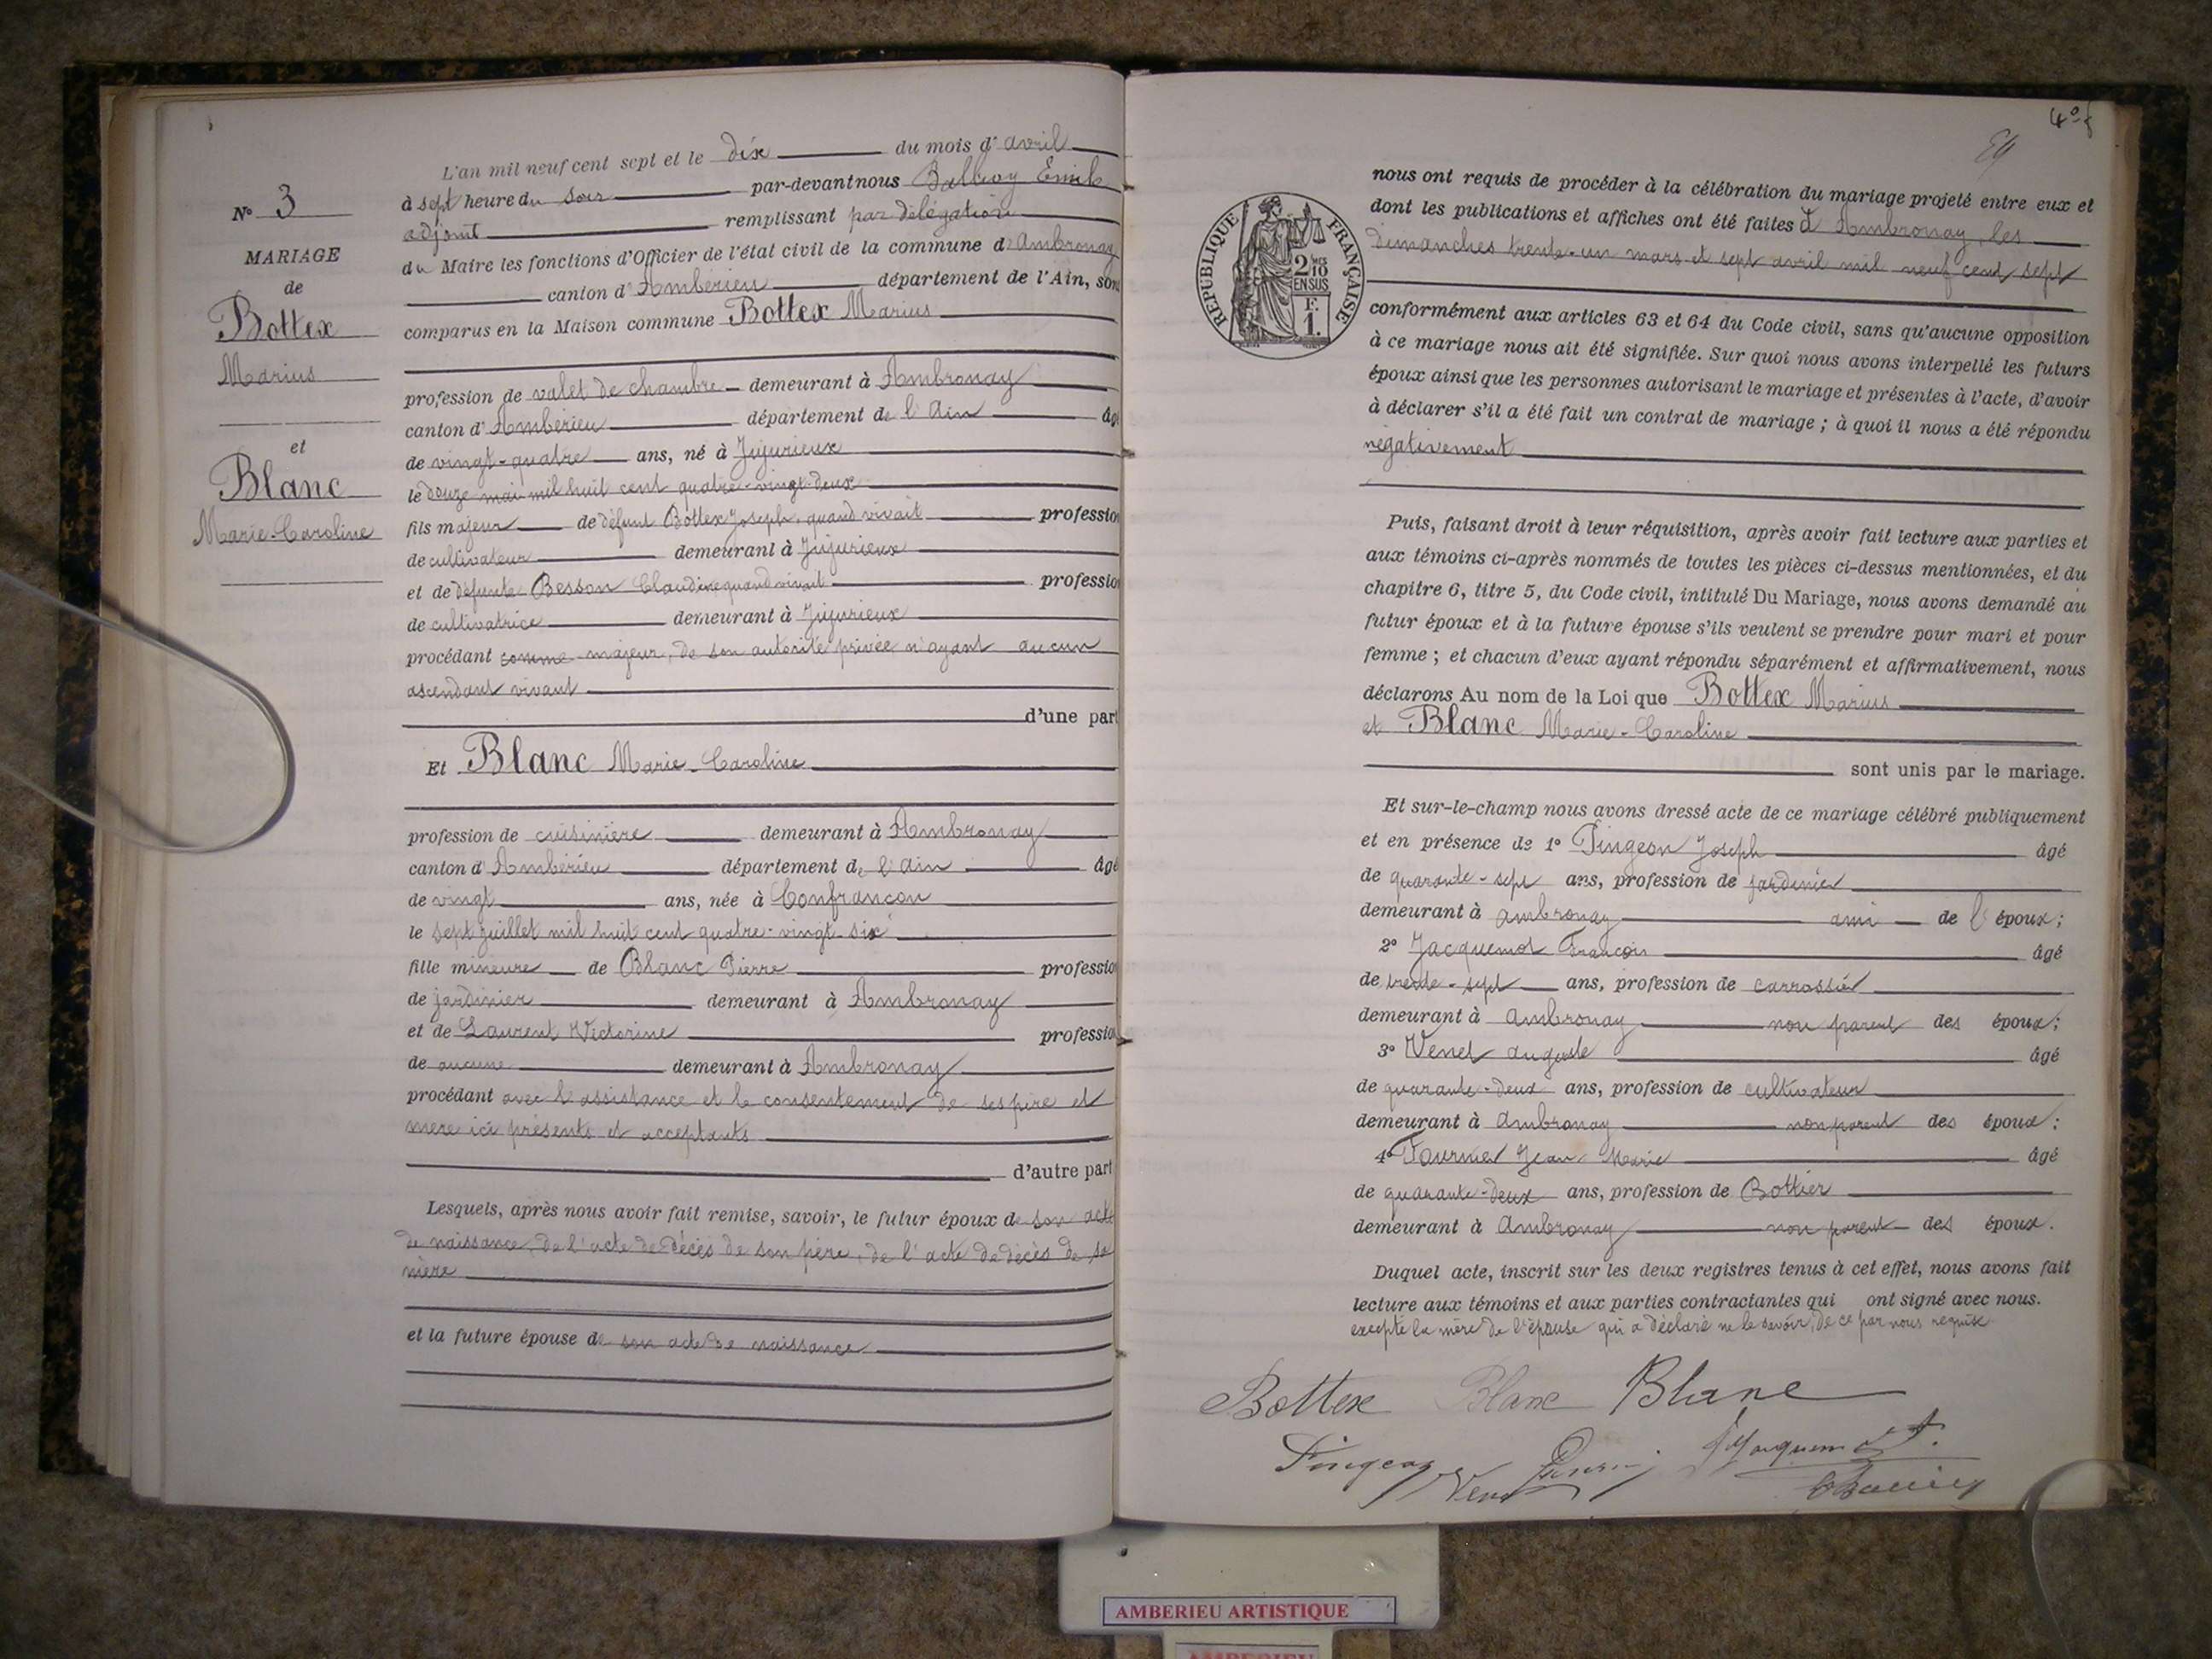 N° 3
MARIAGE
de
Bottex
Marius
et
Blanc
Marie-Caroline
L'an mil neuf cent sept et le dix du mois d'avril
à sept heure du soir par-devant nous Emile
adjoint remplissant par délégation
du Maire les fonctions d'Officier de l'état civil de la commune d'Ambronay
canton d'Ambérieu département de l'Ain, son
comparus en la Maison commune Bottex Marius
profession de valet de chambre demeurant à Ambronay
canton d'Ambérieu département de l'Ain âgé
de vingt-quatre ans, né à Jujurieux
le douze mai mil huit cent quatre-vingt-deux
fils majeur de défunt Bottex Joseph, quand vivait profession
de cultivateur demeurant à Jujurieux
et de défunte Besson Claudine quand vivait profession
de cultivatrice demeurant à Jujurieux
procédant comme majeur, de son autorité privée n'ayant aucun
ascendant vivant
d'une part
Et Blanc Marie-Caroline
profession de cuisinière demeurant à Ambronay
canton d'Ambérieu département de l'Ain âgé
de vingt ans, née à Confrançon
le sept juillet mil huit cent quatre-vingt-six
fille mineure de Blanc Pierre profession
de jardinier demeurant à Ambronay
et de Laurent Victorine profession
de aucune demeurant à Ambronay
procédant avec l'assistance et le consentement de ses père et
mère ici présents et acceptants
d'autre part
Lesquels, après nous avoir fait remise, savoir, le futur époux de son acte
de naissance, de l'acte de décès de son père, de l'acte de décès de sa
mère
et la future épouse de son acte de naissance
4° f
RÉPUBLIQUE FRANÇAISE
2 MES
10
EN SUS
F.
1.
nous ont requis de procéder à la célébration du mariage projeté entre eux et
dont les publications et affiches ont été faites à Ambronay, les
dimanches trente-un mars et sept avril mil neuf cent sept
conformément aux articles 63 et 64 du Code civil, sans qu'aucune opposition
à ce mariage nous ait été signifiée. Sur quoi nous avons interpellé les futurs
époux ainsi que les personnes autorisant le mariage et présentes à l'acte, d'avoir
à déclarer s'il a été fait un contrat de mariage ; à quoi il nous a été répondu
négativement
Puis, faisant droit à leur réquisition, après avoir fait lecture aux parties et
aux témoins ci-après nommés de toutes les pièces ci-dessus mentionnées, et du
chapitre 6, titre 5, du Code civil, intitulé Du Mariage, nous avons demandé au
futur époux et à la future épouse s'ils veulent se prendre pour mari et pour
femme ; et chacun d'eux ayant répondu séparément et affirmativement, nous
déclarons Au nom de la Loi que Bottex Marius
et Blanc Marie-Caroline
sont unis par le mariage.
Et sur-le-champ nous avons dressé acte de ce mariage célébré publiquement
et en présence de 1° Pingeon Joseph âgé
de quarante-sept ans, profession de jardinier
demeurant à Ambronay ami de l'époux ;
2° Jacquemot François âgé
de trente-sept ans, profession de carrossier
demeurant à Ambronay non parent des époux ;
3° Venet Auguste âgé
de quarante-deux ans, profession de cultivateur
demeurant à Ambronay non parent des époux ;
4° Fournier Jean-Marie âgé
de quarante-deux ans, profession de Bottier
demeurant à Ambronay non parent des époux.
Duquel acte, inscrit sur les deux registres tenus à cet effet, nous avons fait
lecture aux témoins et aux parties contractantes qui ont signé avec nous.
excepté la mère de l'épouse qui a déclaré ne le savoir, de ce par nous requise
Bottex Blanc Blanc
Pingeon Jacquemot
Venet
AMBERIEU ARTISTIQUE
AMBERIEU